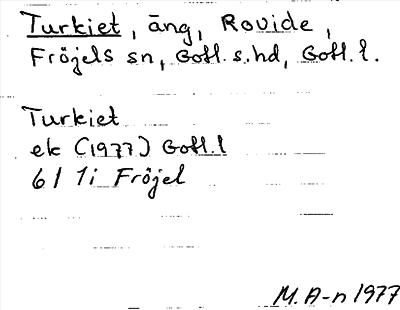 Turkiet, äng, Rovide,
Fröjels sn, Gotl. s. hd, Gotl. l.
Turkiet
ek (1977) Gotl. l
6 I 1i Fröjel
M. A-n 1977